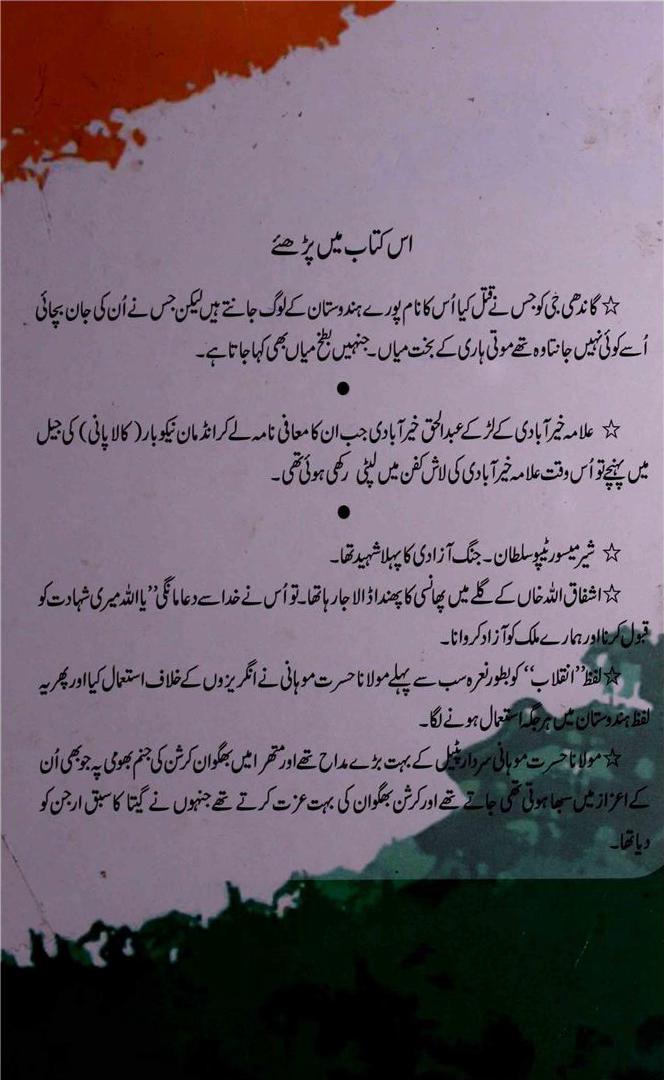 اس کتاب میں پڑھئے
☆ گاندھی جی کو جس نے قتل کیا اُس کا نام پورے ہندوستان کے لوگ جانتے ہیں لیکن جس نے اُن کی جان بچائی
اُسے کوئی نہیں جانتا وہ تھے موتی ہاری کے بخت میاں۔ جنہیں بطخ میاں بھی کہا جاتا ہے۔
●
☆ علامہ خیرآبادی کے لڑکے عبدالحق خیرآبادی جب ان کا معافی نامہ لے کر انڈمان نیکوبار (کالا پانی) کی جیل
میں پہنچے تو اُس وقت علامہ خیرآبادی کی لاش کفن میں لپٹی رکھی ہوئی تھی۔
●
☆ شیر میسور ٹیپو سلطان۔ جنگ آزادی کا پہلا شہید تھا۔
☆ اشفاق اللہ خاں کے گلے میں پھانسی کا پھندا ڈالا جا رہا تھا۔ تو اُس نے خدا سے دعا مانگی ”یا اللہ میری شہادت کو
قبول کرنا اور ہمارے ملک کو آزاد کروانا۔
☆ لفظ ”انقلاب“ کو بطور نعرہ سب سے پہلے مولانا حسرت موہانی نے انگریزوں کے خلاف استعمال کیا اور پھر یہ
لفظ ہندوستان میں ہر جگہ استعمال ہونے لگا۔
☆ مولانا حسرت موہانی سردار پٹیل کے بہت بڑے مداح تھے اور متھرا میں بھگوان کرشن کی جنم بھومی پہ جو بھی اُن
کے اعزاز میں سبھا ہوتی تھی جاتے تھے اور کرشن بھگوان کی بہت عزت کرتے تھے جنہوں نے گیتا کا سبق ارجن کو
دیا تھا۔